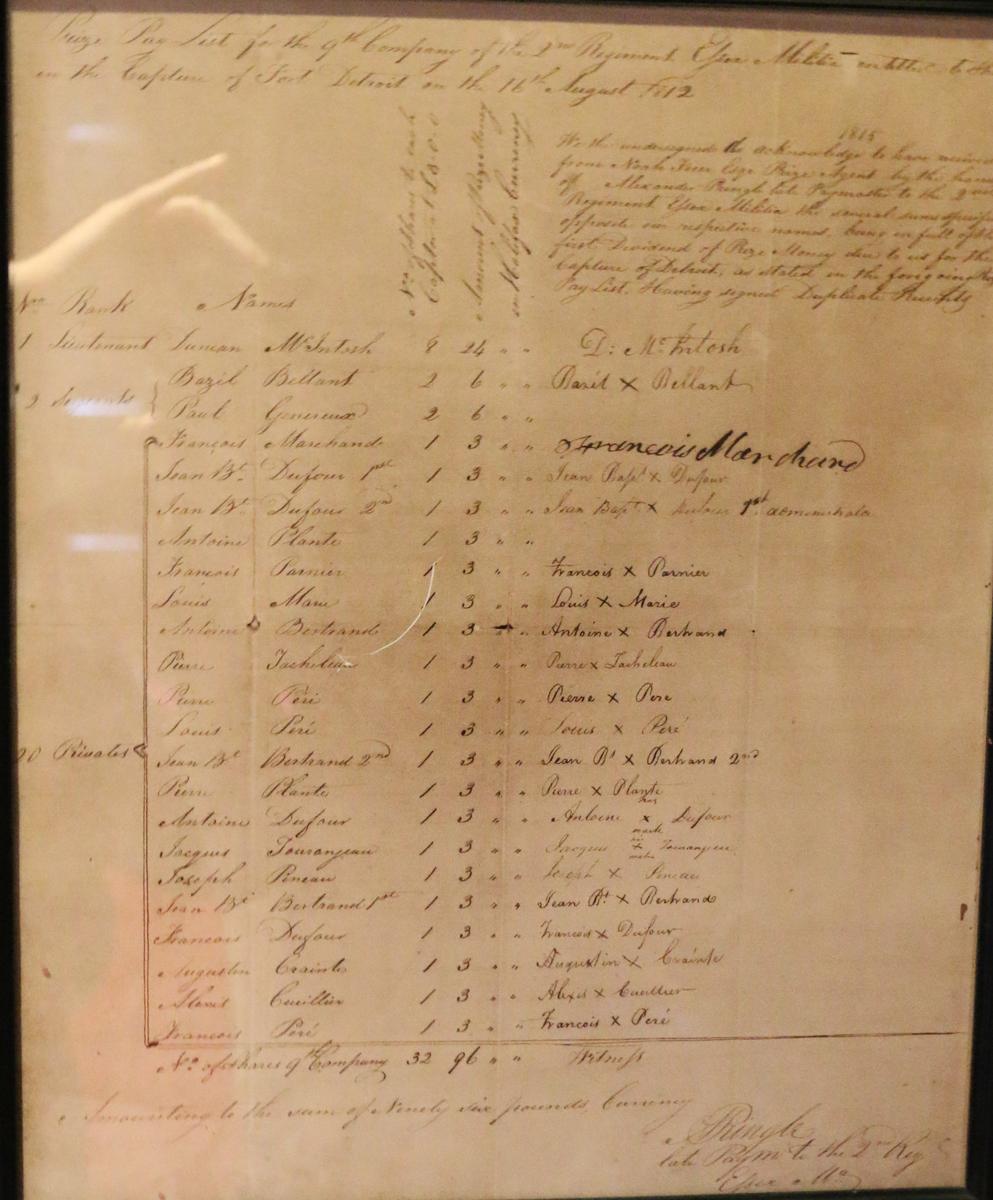 Prize Pay List for the 9th Company of the 2nd Regiment Essex Militia entitled to
in the Capture of Fort Detroit on the 16th August 1812
No of Shares to each
Captain
Amount of Prize Money
in Halifax Currency
1815
We the undersigned do acknowledge to have received
from Noah Freer Esqr Prize Agent by the hands
of Alexander Pringle late Paymaster to the 2nd
Regiment Essex Militia the several sums specified
opposite our respective names, being in full of the
first Dividend of Prize Money due to us for the
Capture of Detroit, as stated in the foregoing
Pay List. Having signed Duplicate Receipts
Nos Rank Names
1 Lieutenant Duncan McIntosh 8 24 " " D: McIntosh
Bazil Bellant 2 6 " " Bazil X Bellant
2 Serjeants
Paul Genereux 2 6 " "
François Marchand 1 3 " " François Marchand
Jean Bt. Dufour 1st 1 3 " " Jean Bapt X Dufour
Jean Bt. Dufour 2nd 1 3 " " Jean Bapt X Dufour 1st administrator
Antoine Plante 1 3 " "
François Parnier 1 3 " " Francois X Parnier
Louis Marie 1 3 " " Louis X Marie
Antoine Bertrand 1 3 " " Antoine X Bertrand
Pierre Tacheleau 1 3 " " Pierre X Tacheleau
Pierre Péré 1 3 " " Pierre X Pere
Louis Péré 1 3 " " Louis X Peré
20 Privates Jean Bt Bertrand 2nd 1 3 " " Jean Bt X Bertrand 2nd
Pierre Plante 1 3 " " Pierre X Plante
Antoine Dufour 1 3 " " Antoine his X mark Dufour
Jacques Touranjeau 1 3 " " Jacques his X mark Touranjeau
Joseph Pineau 1 3 " " Joseph X Pineau
Jean Bt Bertrand 1st 1 3 " " Jean Bt X Bertrand
Francois Dufour 1 3 " " Francois X Dufour
Augustin Crainte 1 3 " " Augustin X Crainte
Alexis Cuillier 1 3 " " Alexis X Cuillier
Francois Peré 1 3 " " Francois X Peré
No. of shares 9th Company 32 96 " " Witness
Amounting to the sum of Ninety six pounds Currency
APringle
late Paym to the 2nd Reg
Essex Ma